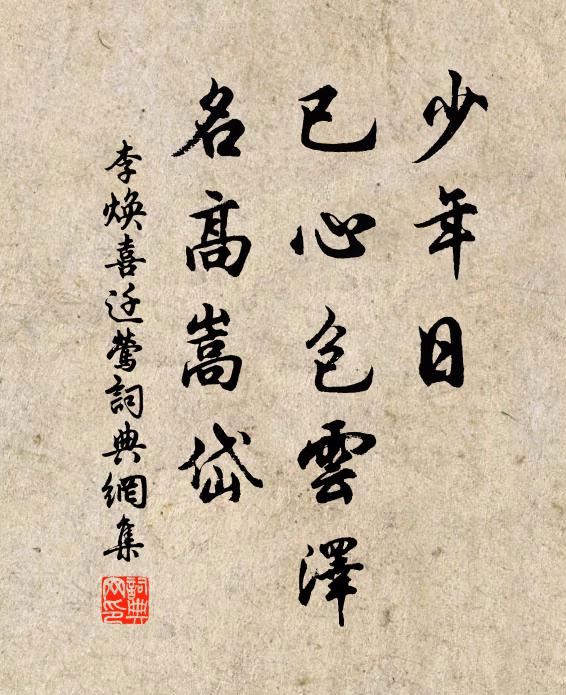 少年日
已心包雲澤
名高嵩岱
李焕喜迁鶯詞典網集
詞典
网印